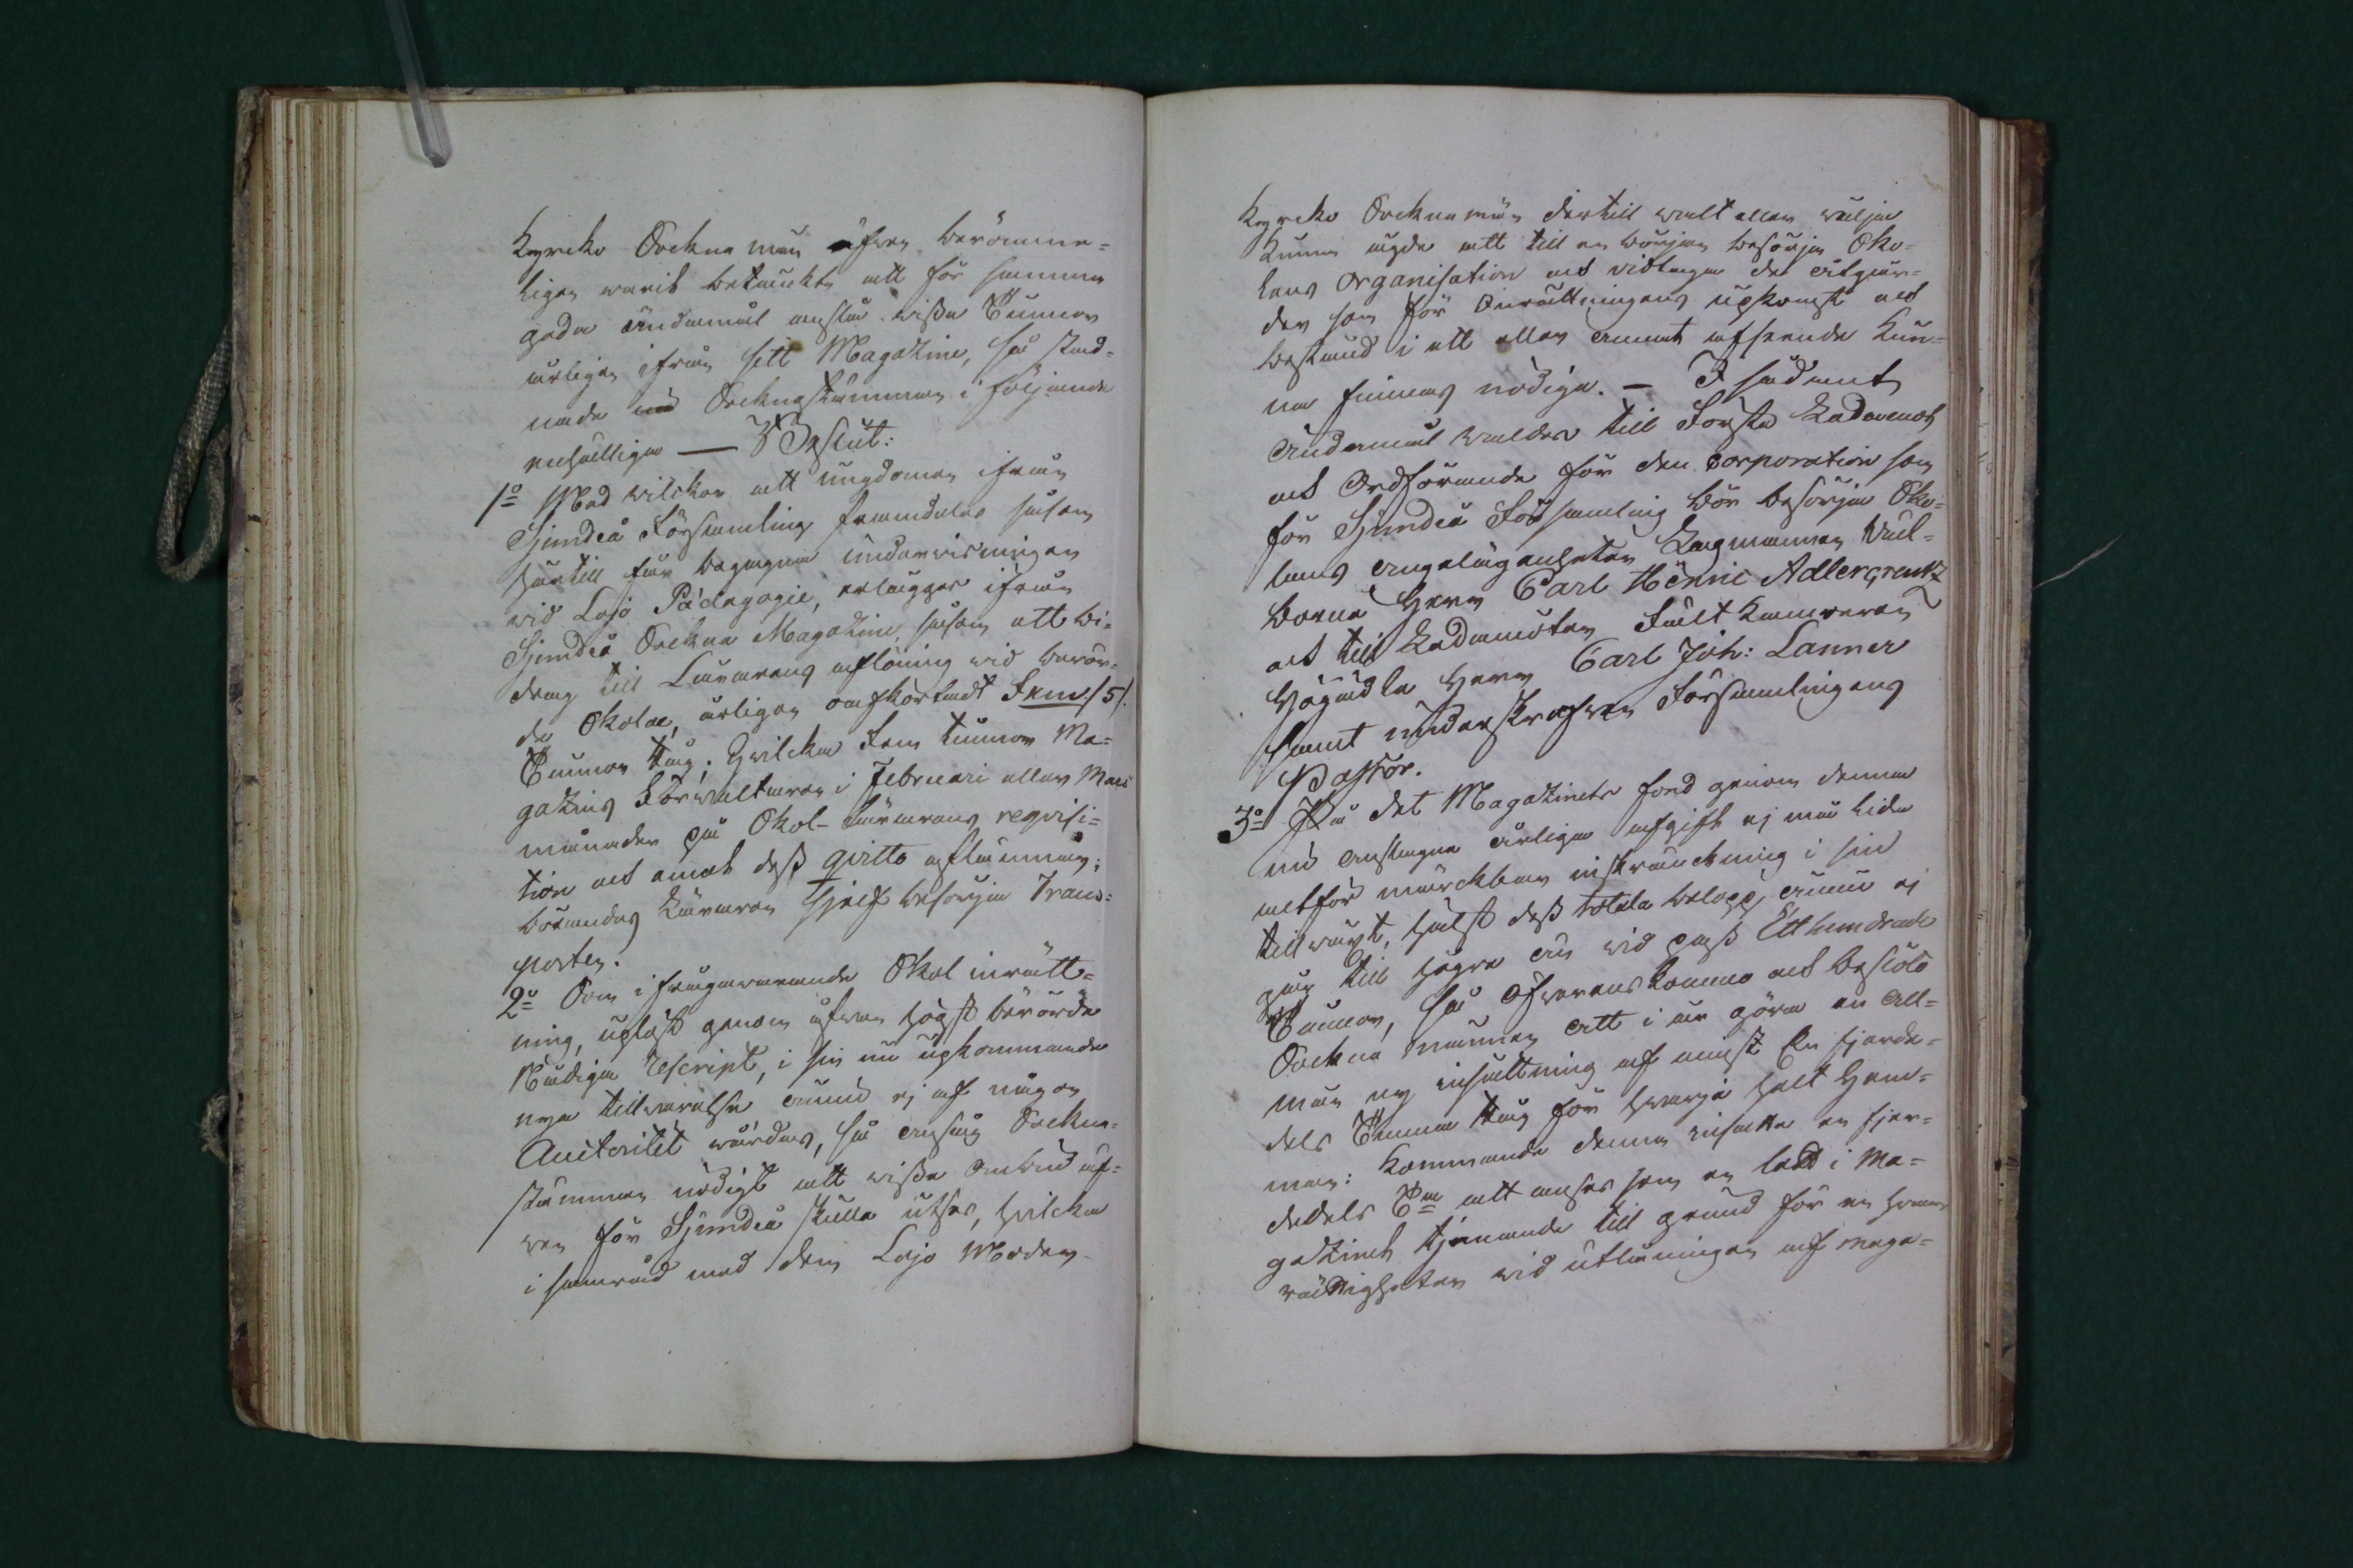 Kyrcko Sockne män äfven berömme-
ligen varit betänckte att för samma
goda ändamål anslå vissa Tunnor
årligen ifrån sitt Magazine, så stad-
nade nu Sockne stämman i följande
enhällige — Beslut:
1o Med vilckor att ungdomen ifrån
Sjundeå Församling framdeles såsom
härtill får begagna undervisningen
vid Lojo Pädagogie, erlägges ifrån
Sjundeå Sockne Magazine, såsom ett bi-
drag till Lärarens aflöning vid berör-
de Skola, årligen oafkortadt Fem /5/.
Tunnor Råg; hvilcka Fem tunnor Ma-
gazins Förvaltaren i Februari eller Mars
månader på Skol-Lärarens reqvisi-
tion och emot dess qvitto aflämnar;
börandes Läraren sjelf besörja Trans-
porten.
2o Som ifrågavarande Skol inrätt-
ning, uplöst genom äfven högst berörde
Nådiga Rescript, i sin nu upkommande
nya tillvarelse ännu ej af någon
Auctoritet vårdas, så ansåg Sockne-
stämman nödigt att vissa Ombud äf-
ven för Sjundeå skulle utses, hvilcka
i samråd med dem Lojo Moder-
Kyrcko Sockne män dertill valt eller välja
kunna ägde att till en början besörja Sko-
lans Organisation och vidtaga de åtgär-
der som för Inrättningens upkomst och
bestånd i ett eller annat afseende kun-
na finnas nödiga. — I sådant
Ändamål valdes till Första Ledamot
och Ordförande för den Corporation som
för Sjundeå Församling bör besörja Sko-
lans angelägenheter Lagmannen Väl-
borne Herr Carl Henric Adlercreutz
och till Ledamöter Fält Kamreraren
Högädla Herr Carl Joh: Lanner
samt underskrefven Församlingens
Pastor.
3o På det Magazinets fond genom denna
nu anslagne årliga afgift ej må lida
allt för märckbar inskränckning i sin
tillväxt, hälst dess totala belopp, ännu ej
går till högre än vid pass Etthundrade
Tunnor, så öfverenskommo och beslöto
Sockne männen att i år göra en All-
män ny insättning af minst En fjerde-
dels Tunna Råg för hvarje helt Hem-
man: Kommande denna insatta en fjer-
dedels Tna att anses som en lott i Ma-
gazinet tjenande till grund för en hvars
rättigheter vid utlåningen af Maga-